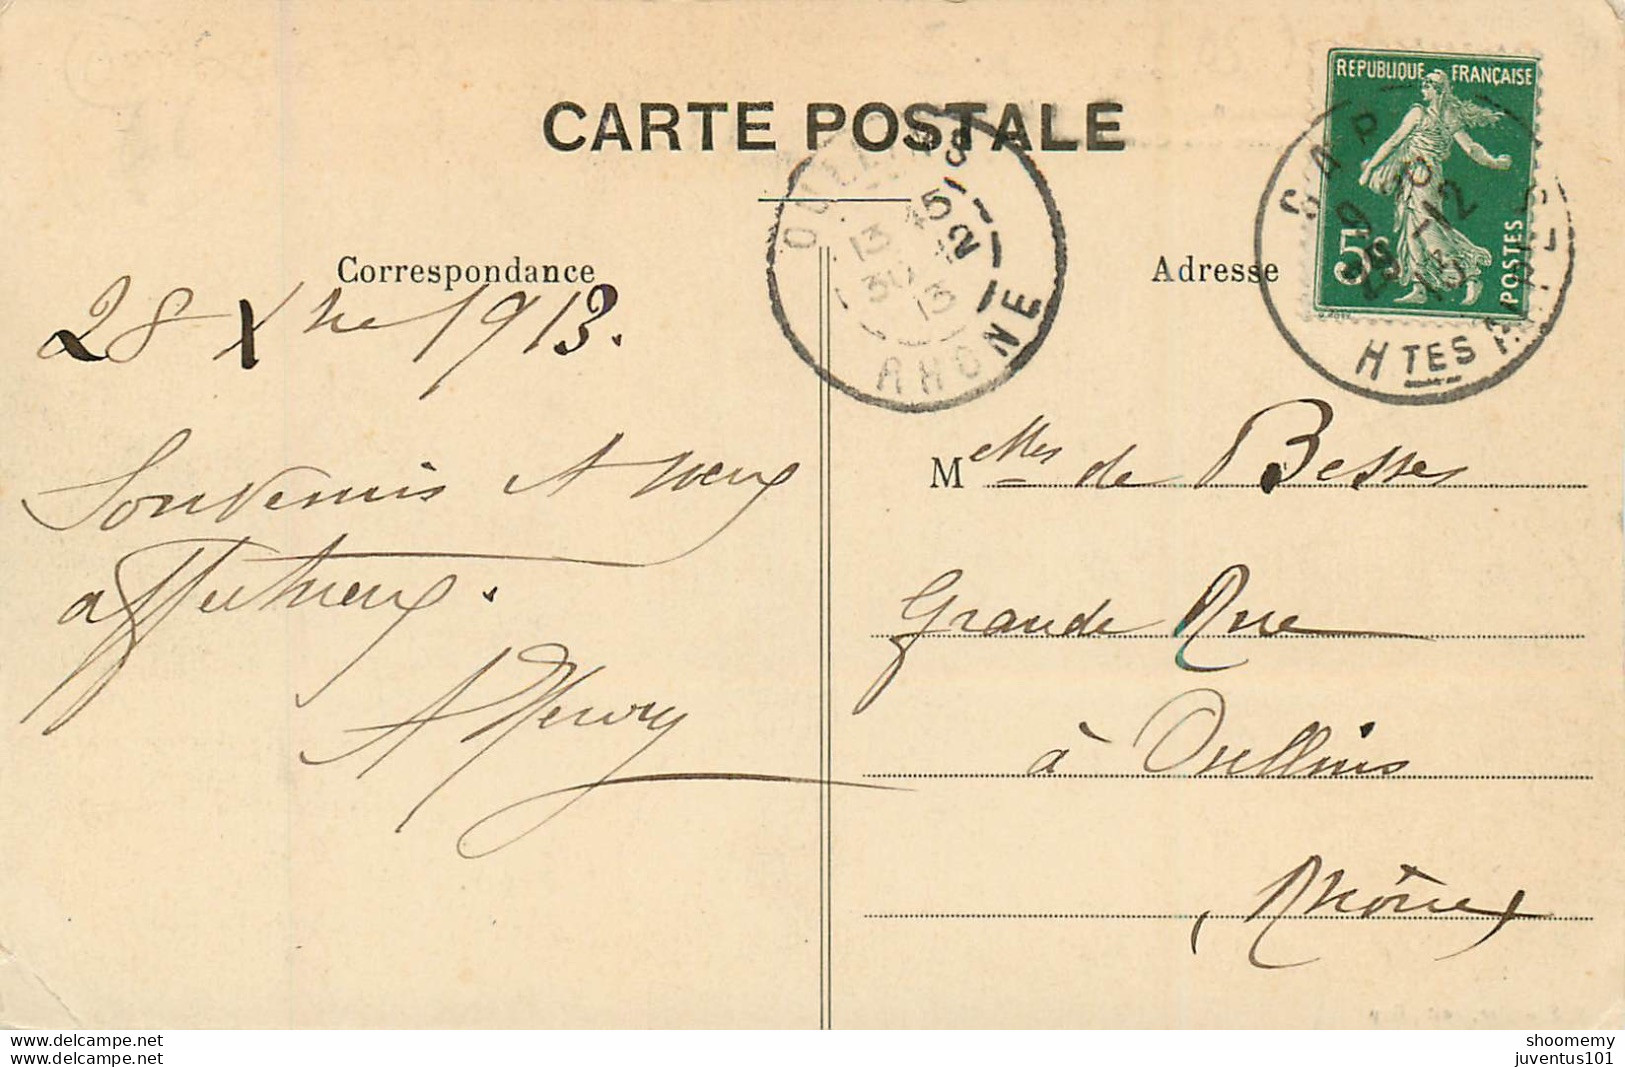 CARTE POSTALE
RÉPUBLIQUE FRANÇAISE
5c
POSTES
GAP
9
29-12
13
HTES ALPES
OULLINS
13 45
30 12
13
RHÔNE
Correspondance
Adresse
28 Xbre 1913.
Souvenirs et vœux
affectueux.
A Fleury
Melles de Besses
Grande Rue
à Oullins
Rhône
shoomemy
www.delcampe.net
juventus101